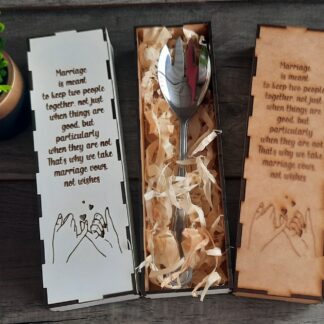 Marriage
is meant
to keep two people
together, not just
when things are
good, but
particularly
when they are not.
That's why we take
marriage vows,
not wishes
Marriage
is meant
to keep two people
together, not just
when things are
good, but
particularly
when they are not.
That's why we take
marriage vows,
not wishes